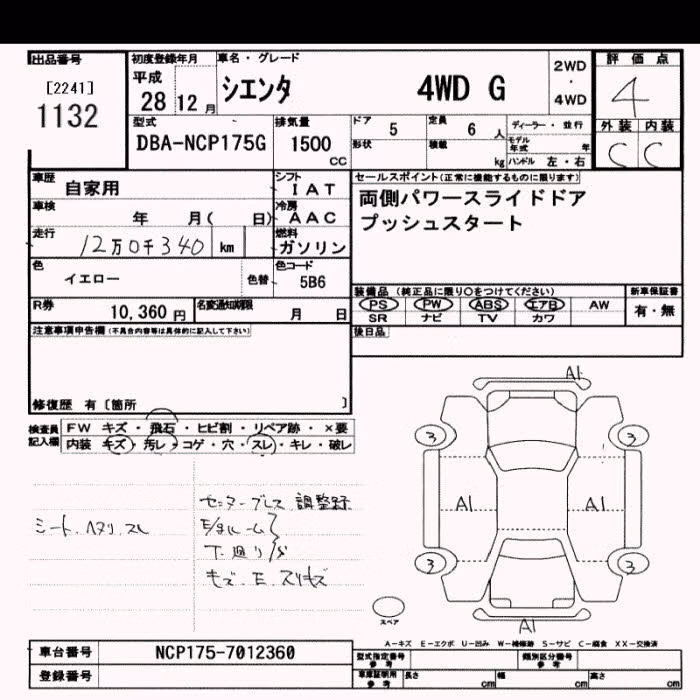 出品番号 初度登録年月 車名・グレード 2WD ・ 4WD 評価点
[2241] 1132 平成 28 12月 シエンタ 4WD G 4
型式 排気量 ドア 5 定員 6人 ディーラー・並行 外装 内装
DBA-NCP175G 1500 CC 形状 積載 kg モデル年式 年 ハンドル 左・右 C C
車歴 自家用 シフト IAT セールスポイント(正常に機能するものに限ります)
車検 年 月( 日) 冷房 AAC 両側パワースライドドア
走行 12万0千340 km 燃料 ガソリン プッシュスタート
色 イエロー 色替 色コード 5B6
装備品 (純正品に限り○をつけてください) 新車保証書
R券 10,360円 名変通知期限 月 日 PS PW ABS エアB AW 有・無
SR ナビ TV カワ
注意事項申告欄(不具合内容等は具体的に記入して下さい) 後日品
修復歴 有〔箇所 〕
検査員記入欄 FW キズ・飛石・ヒビ割・リペア跡・×要
内装 キズ・汚レ・コゲ・穴・スレ・キレ・破レ
A1
3 3
A1 A1
3 3
A1
スペア
シート、ヘタリ、スレ
調整録
キズ、E、スリキズ
A-キズ E-エクボ U-凹み W-補修跡 S-サビ C-腐食 XX-交換済
車台番号 NCP175-7012360 型式指定番号 参考 類別区分番号 参考
登録番号 車庫証明用 参考 長さ cm 幅 cm 高さ cm